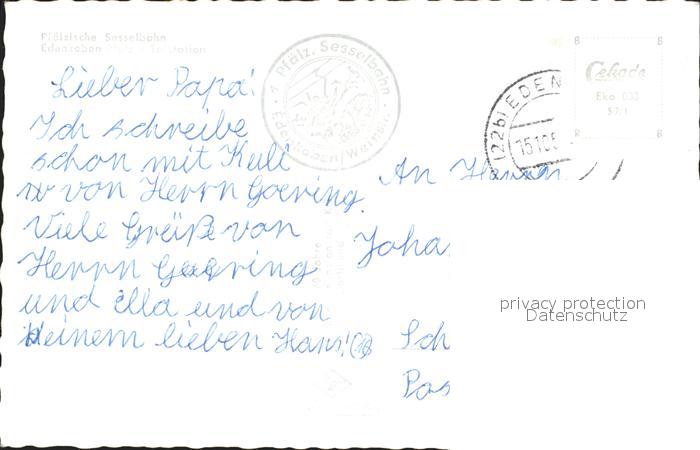 Pfälzische Sesselbahn
Edenkoben Pfalz - Talstation
Pfälz. Sesselbahn
Edenkoben/Weinstr.
B B
Cekade
Eko 033
57/1
B B
(22b) EDEN
15.10.5
Lieber Papa!
Ich schreibe
schon mit Kuli
von Herrn Goering.
Viele Grüße von
Herrn Goering
und Ella und von
deinem lieben Hans!
An Herrn
Joha
Sch
Pos
privacy protection
Datenschutz